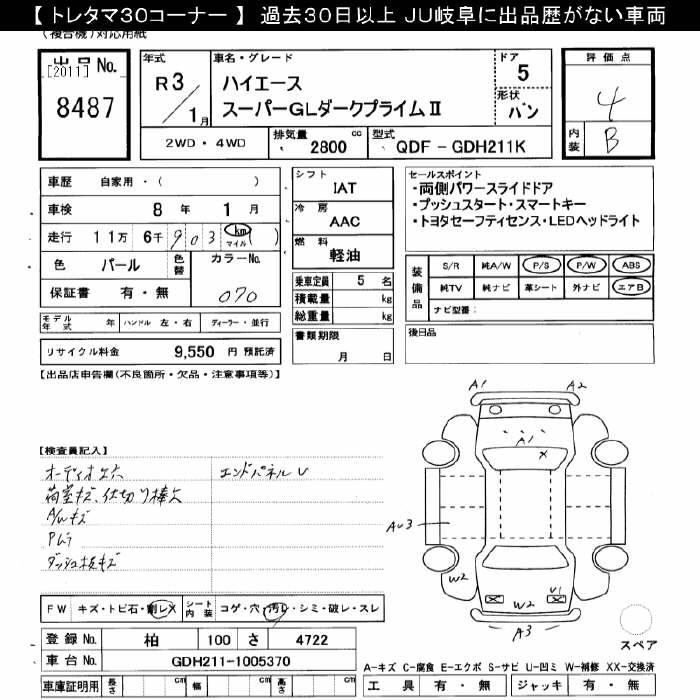 【 トレタマ30コーナー 】 過去30日以上 JU岐阜に出品歴がない車両
(複合機)対応用紙
出品No.
[2011]
8487
年式
R 3 / 1月
車名・グレード
ハイエース
スーパーGLダークプライムⅡ
ドア
5
形状
バン
2WD・4WD
排気量
2800 cc
型式
QDF - GDH211K
評価点
4
内装
B
車歴 自家用・( )
車検 8年 1月
走行 11万 6千 903 km マイル ( )
色 パール
色替
カラーNo.
070
保証書 有・無
モデル年式 年 ハンドル 左・右 ディーラー・並行
リサイクル料金 9,550 円 預託済
シフト
IAT
冷房
AAC
燃料
軽油
乗車定員 5 名
積載量 kg
総重量 kg
書類期限
月 日
セールスポイント
・両側パワースライドドア
・プッシュスタート・スマートキー
・トヨタセーフティセンス・LEDヘッドライト
装備品
S/R 純A/W P/S P/W ABS
純TV 純ナビ 革シート 外ナビ エアB
ナビ型番:
後日品
【出品店申告欄(不良箇所・欠品・注意事項等)】
【検査員記入】
オーディオ欠
荷室キズ、仕切り棒欠
A/Wキズ
Pムラ
ダッシュ板キズ
エンドパネルU
A1
A2
A1
X
AU3
W2
W2
U1
A3
スペア
FW キズ・トビ石・割レX
シート内装 コゲ・穴・汚レ・シミ・破レ・スレ
登録No. 柏 100 さ 4722
車台No. GDH211-1005370
車庫証明用 長さ cm 幅 cm 高さ cm
A-キズ C-腐食 E-エクボ S-サビ U-凹ミ W-補修 XX-交換済
工具 有・無 ジャッキ 有・無